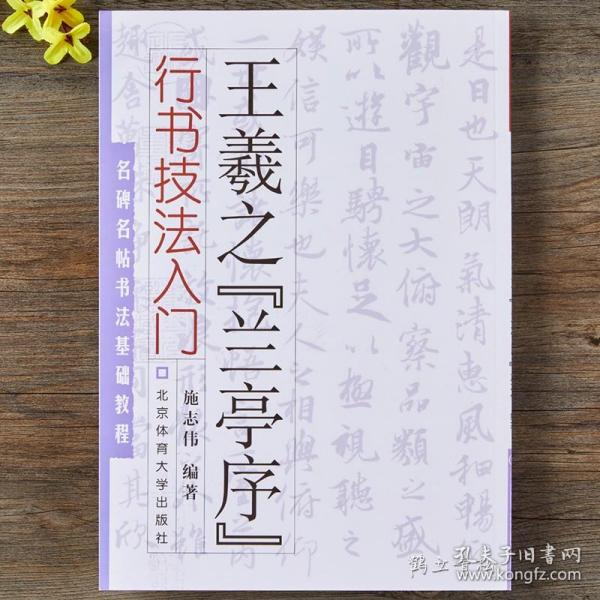 王羲之『兰亭序』
行书技法入门
名碑名帖书法基础教程
施志伟 编著
北京体育大学出版社
是日也天朗氣清惠風和暢
觀宇宙之大俯察品類之盛
所以遊目騁懷足以極視聽之
娛信可樂也夫人之相與俯仰
趣舍萬
其欣
孔夫子旧书网
www.kongfz.com